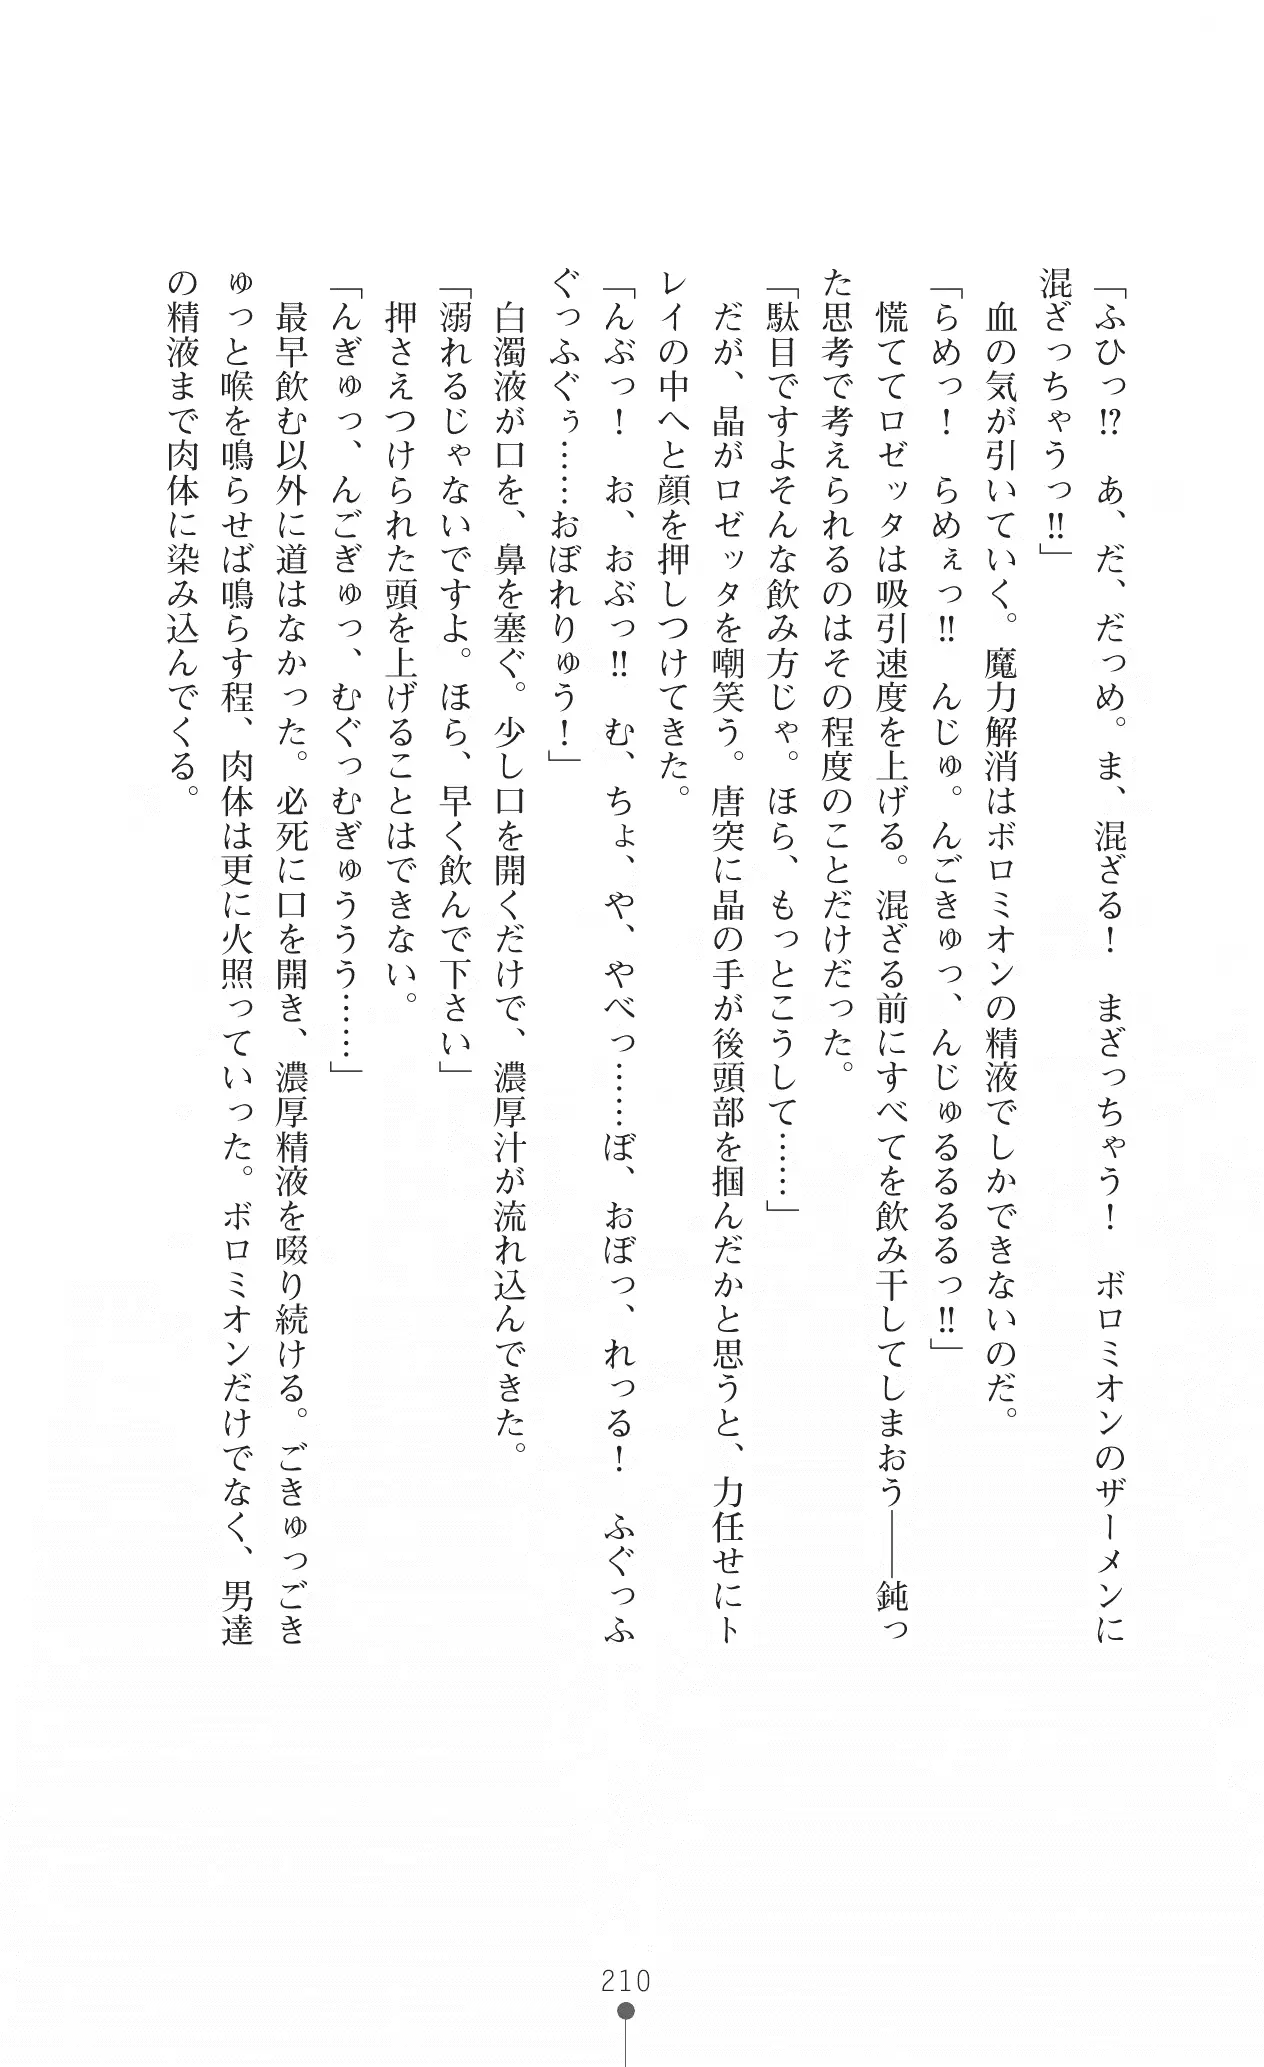 「ふひっ!? あ、だ、だっめ。ま、混ざる! まざっちゃう! ボロミオンのザーメンに
混ざっちゃうっ!!」
血の気が引いていく。魔力解消はボロミオンの精液でしかできないのだ。
「らめっ! らめぇっ!! んじゅ。んごきゅっ、んじゅるるるるっ!!」
慌ててロゼッタは吸引速度を上げる。混ざる前にすべてを飲み干してしまおう――鈍っ
た思考で考えられるのはその程度のことだけだった。
「駄目ですよそんな飲み方じゃ。ほら、もっとこうして……」
だが、晶がロゼッタを嘲笑う。唐突に晶の手が後頭部を掴んだかと思うと、力任せにト
レイの中へと顔を押しつけてきた。
「んぶっ! お、おぶっ!! む、ちょ、や、やべっ……ぼ、おぼっ、れっる! ふぐっふ
ぐっふぐぅ……おぼれりゅう!」
白濁液が口を、鼻を塞ぐ。少し口を開くだけで、濃厚汁が流れ込んできた。
「溺れるじゃないですよ。ほら、早く飲んで下さい」
押さえつけられた頭を上げることはできない。
「んぎゅっ、んごぎゅっ、むぐっむぎゅううう……」
最早飲む以外に道はなかった。必死に口を開き、濃厚精液を啜り続ける。ごきゅっごき
ゅっと喉を鳴らせば鳴らす程、肉体は更に火照っていった。ボロミオンだけでなく、男達
の精液まで肉体に染み込んでくる。
210